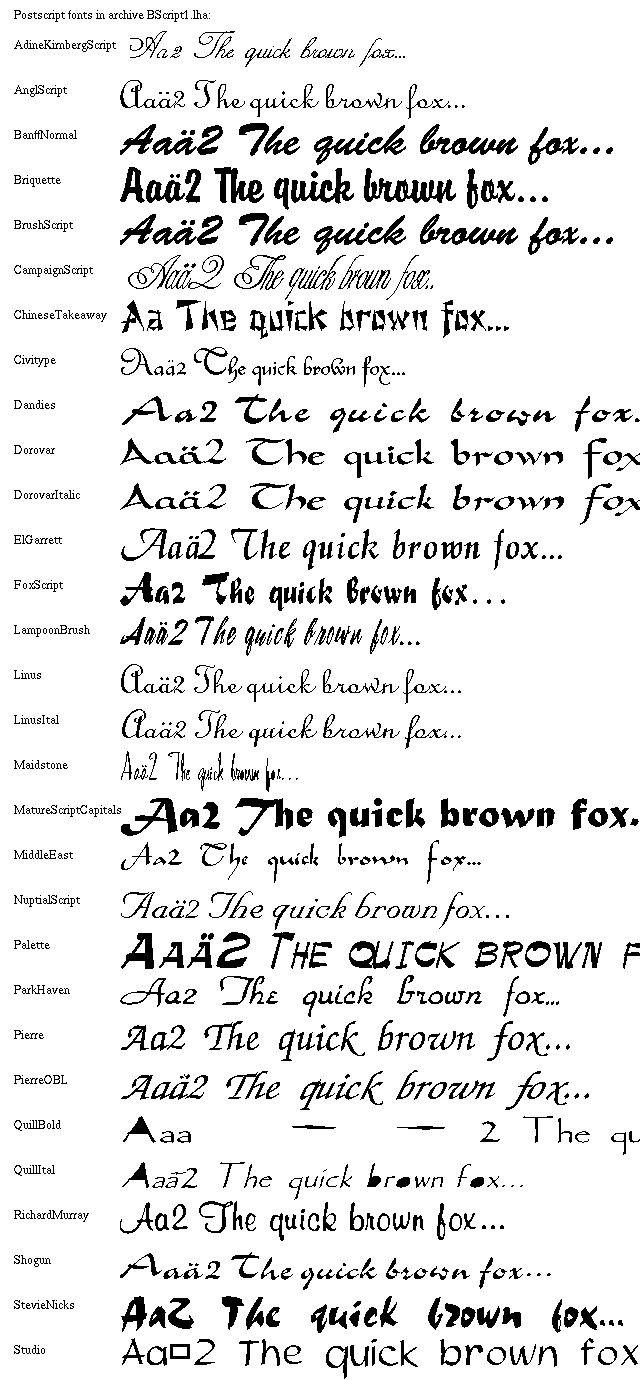 Postscript fonts in archive BScript1.lha:
AdineKirnbergScript Aa2 The quick brown fox...
AnglScript Aaä2 The quick brown fox...
BanffNormal Aaä2 The quick brown fox...
Briquette Aaä2 The quick brown fox...
BrushScript Aaä2 The quick brown fox...
CampaignScript Aaä2 The quick brown fox..
ChineseTakeaway Aa The quick brown fox...
Civitype Aaä2 The quick brown fox...
Dandies Aa2 The quick brown fox.
Dorovar Aaä2 The quick brown fox
DorovarItalic Aaä2 The quick brown fox
ElGarrett Aaä2 The quick brown fox...
FoxScript Aa2 The quick brown fox...
LampoonBrush Aaä2 The quick brown fox...
Linus Aaä2 The quick brown fox...
LinusItal Aaä2 The quick brown fox...
Maidstone Aaä2 The quick brown fox...
MatureScriptCapitals Aa2 The quick brown fox.
MiddleEast Aa2 The quick brown fox...
NuptialScript Aaä2 The quick brown fox...
Palette AAÄ2 THE QUICK BROWN F
ParkHaven Aa2 The quick brown fox...
Pierre Aa2 The quick brown fox...
PierreOBL Aaä2 The quick brown fox...
QuillBold Aaa — — 2 The qu
QuillItal Aaä2 The quick brown fox...
RichardMurray Aa2 The quick brown fox...
Shogun Aaä2 The quick brown fox...
StevieNicks Aa2 The quick brown fox...
Studio Aa□2 The quick brown fox